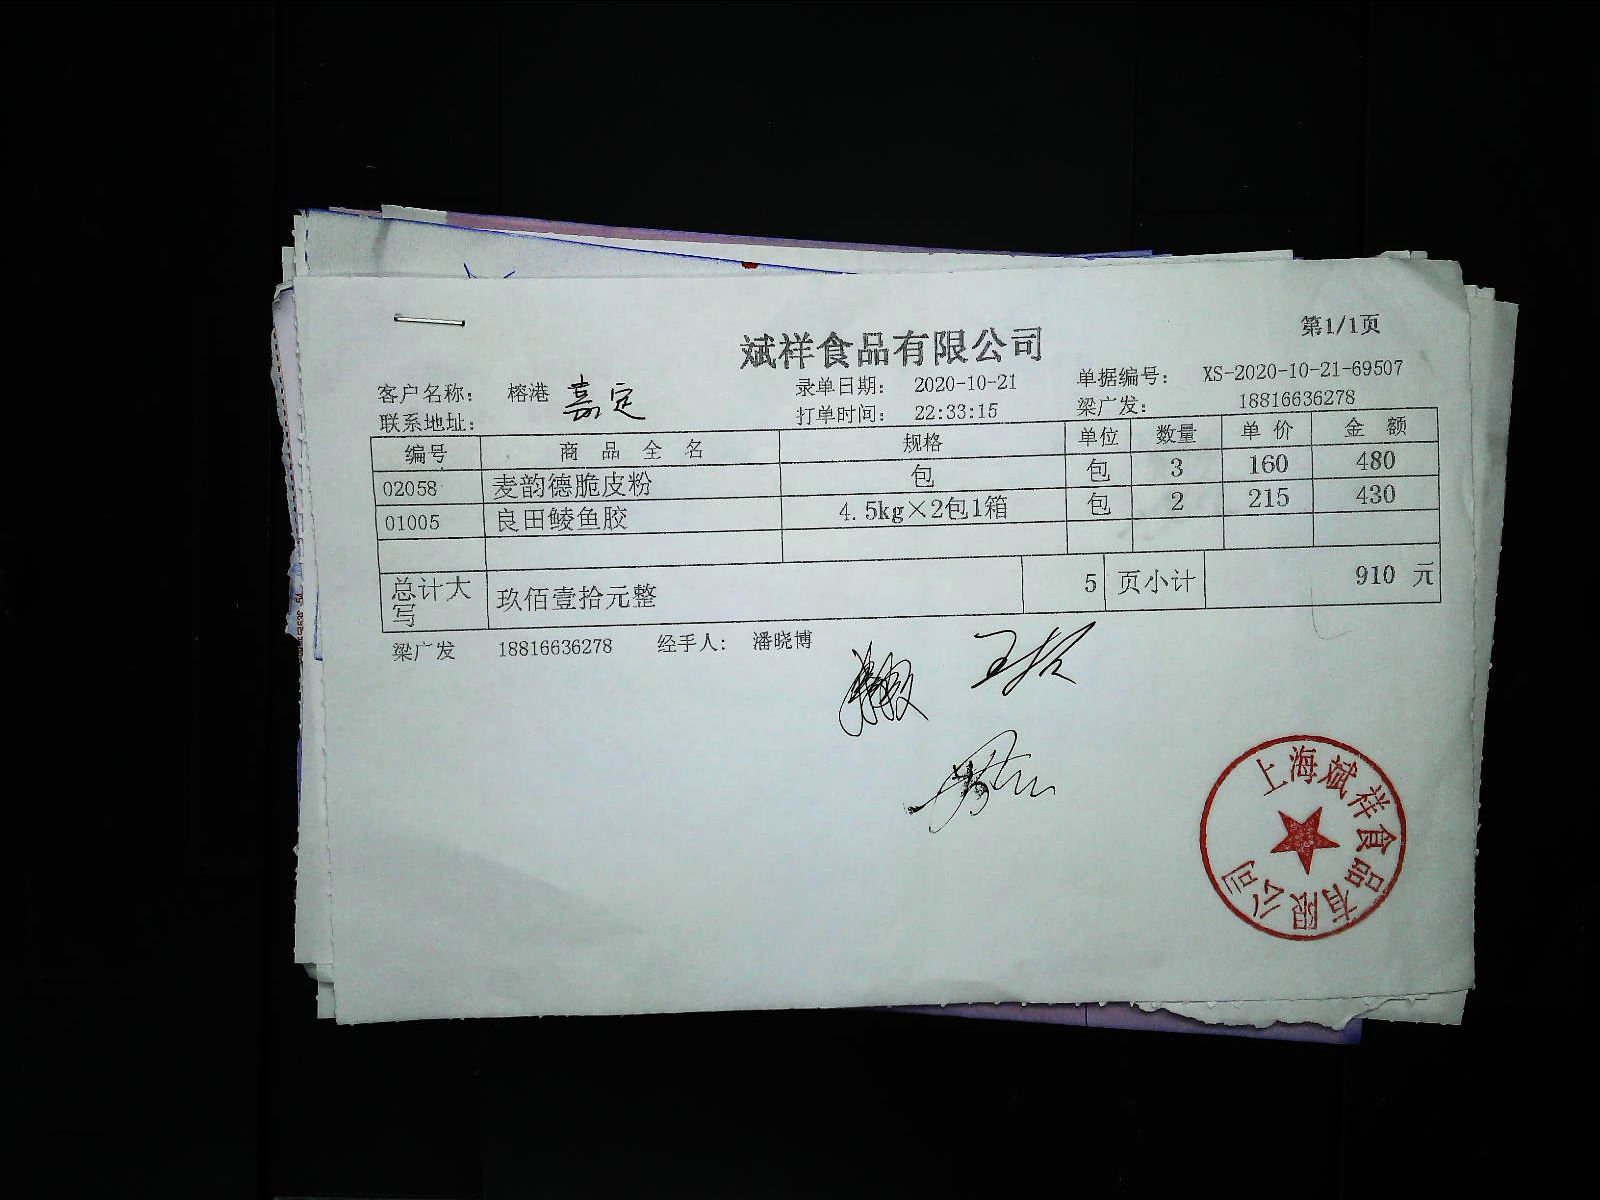 第1/1页
斌祥食品有限公司
客户名称： 榕港 嘉定 录单日期： 2020-10-21 单据编号： XS-2020-10-21-69507
联系地址： 打单时间： 22:33:15 梁广发： 18816636278
编号 商品全名 规格 单位 数量 单价 金额
02058 麦韵德脆皮粉 包 包 3 160 480
01005 良田鲮鱼胶 4.5kg×2包1箱 包 2 215 430
总计大写 玖佰壹拾元整 5 页小计 910 元
梁广发 18816636278 经手人： 潘晓博
上海斌祥食品有限公司